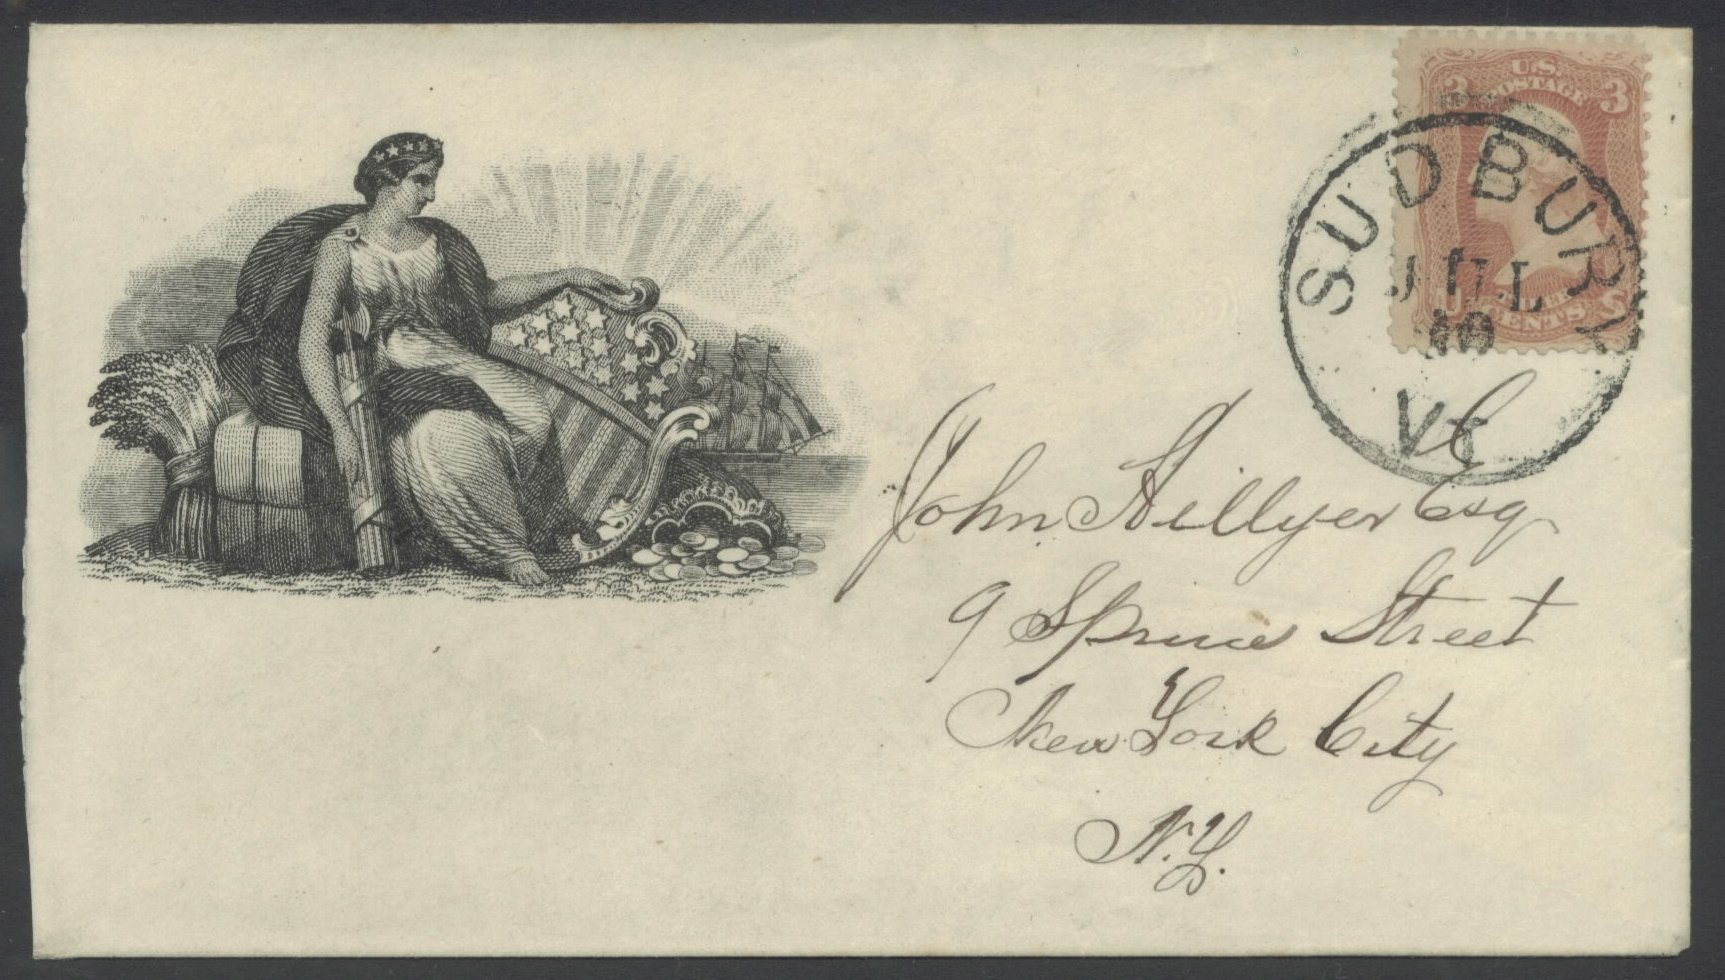 U.S.
POSTAGE
3 3
CENTS
SUDBURY
JUL
Vt
John Hillyer Esq
9 Spruce Street
New York City
N.Y.